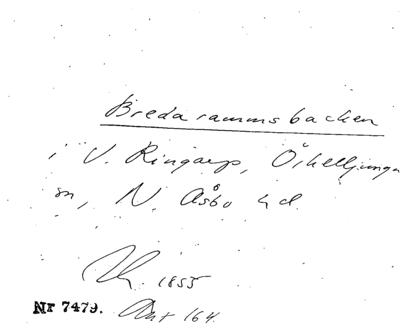 Breda ramms backen
i V. Ringarp, Örkelljunga
sn, N. Åsbo hd.
1855
Nr 7479. Ant 164.